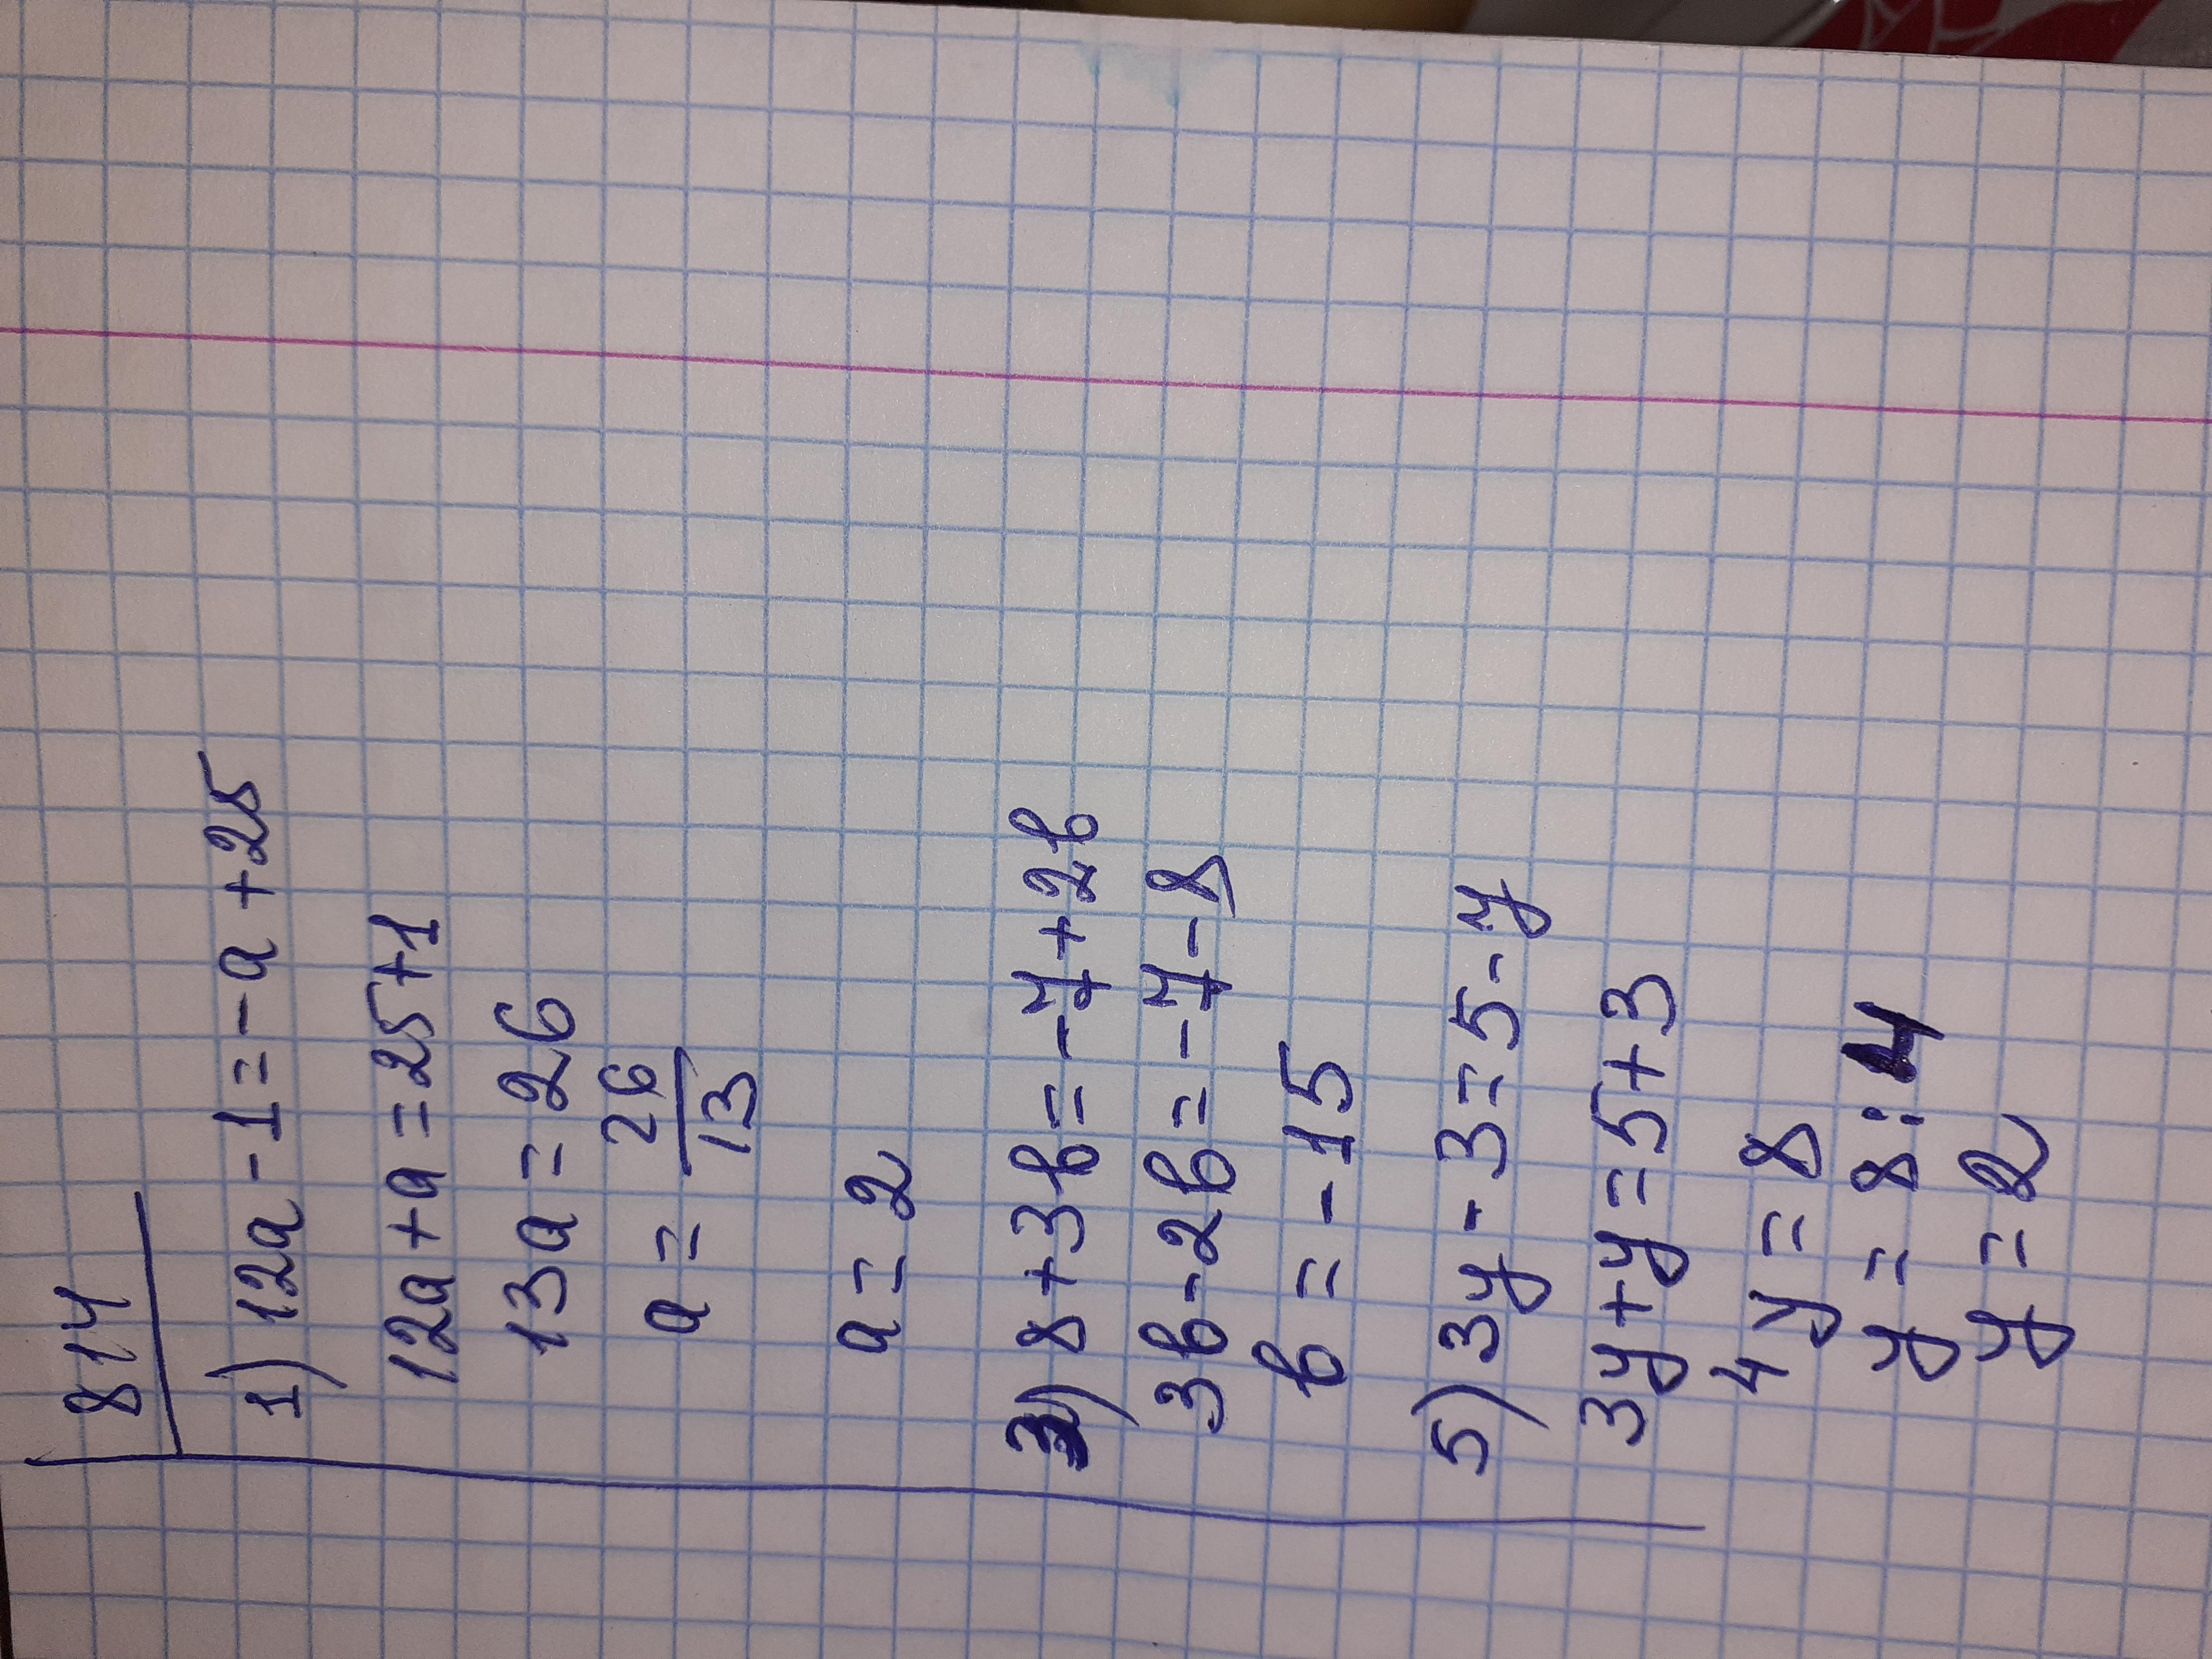 814
1) 12a - 1 = - a + 25
12a + a = 25 + 1
13a = 26
a = 26/13
a = 2
3) 8 + 3в = -7 + 2в
3в - 2в = -7 - 8
в = -15
5) 3y - 3 = 5 - y
3y + y = 5 + 3
4y = 8
y = 8 : 4
y = 2